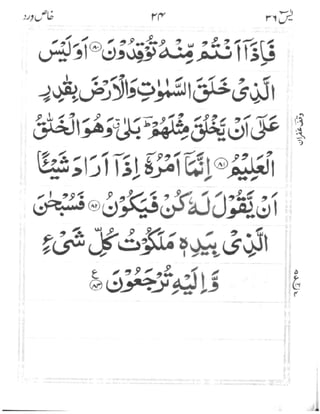 یٰسٓ ۳۶ ۲۴ خاص ورد
فَاِذَآ اَنْتُمْ مِّنْهُ تُوْقِدُوْنَ ﴿۸۰﴾ اَوَلَیْسَ
الَّذِیْ خَلَقَ السَّمٰوٰتِ وَالْاَرْضَ بِقٰدِرٍ
عَلٰٓی اَنْ یَّخْلُقَ مِثْلَهُمْ ؕ بَلٰی ۗ وَهُوَ الْخَلّٰقُ
الْعَلِیْمُ ﴿۸۱﴾ اِنَّمَاۤ اَمْرُهٗۤ اِذَاۤ اَرَادَ شَیْـًٔا
اَنْ یَّقُوْلَ لَهٗ كُنْ فَیَكُوْنُ ﴿۸۲﴾ فَسُبْحٰنَ
الَّذِیْ بِیَدِهٖ مَلَكُوْتُ كُلِّ شَیْءٍ
وَّاِلَیْهِ تُرْجَعُوْنَ ﴿۸۳﴾
وقف غفران